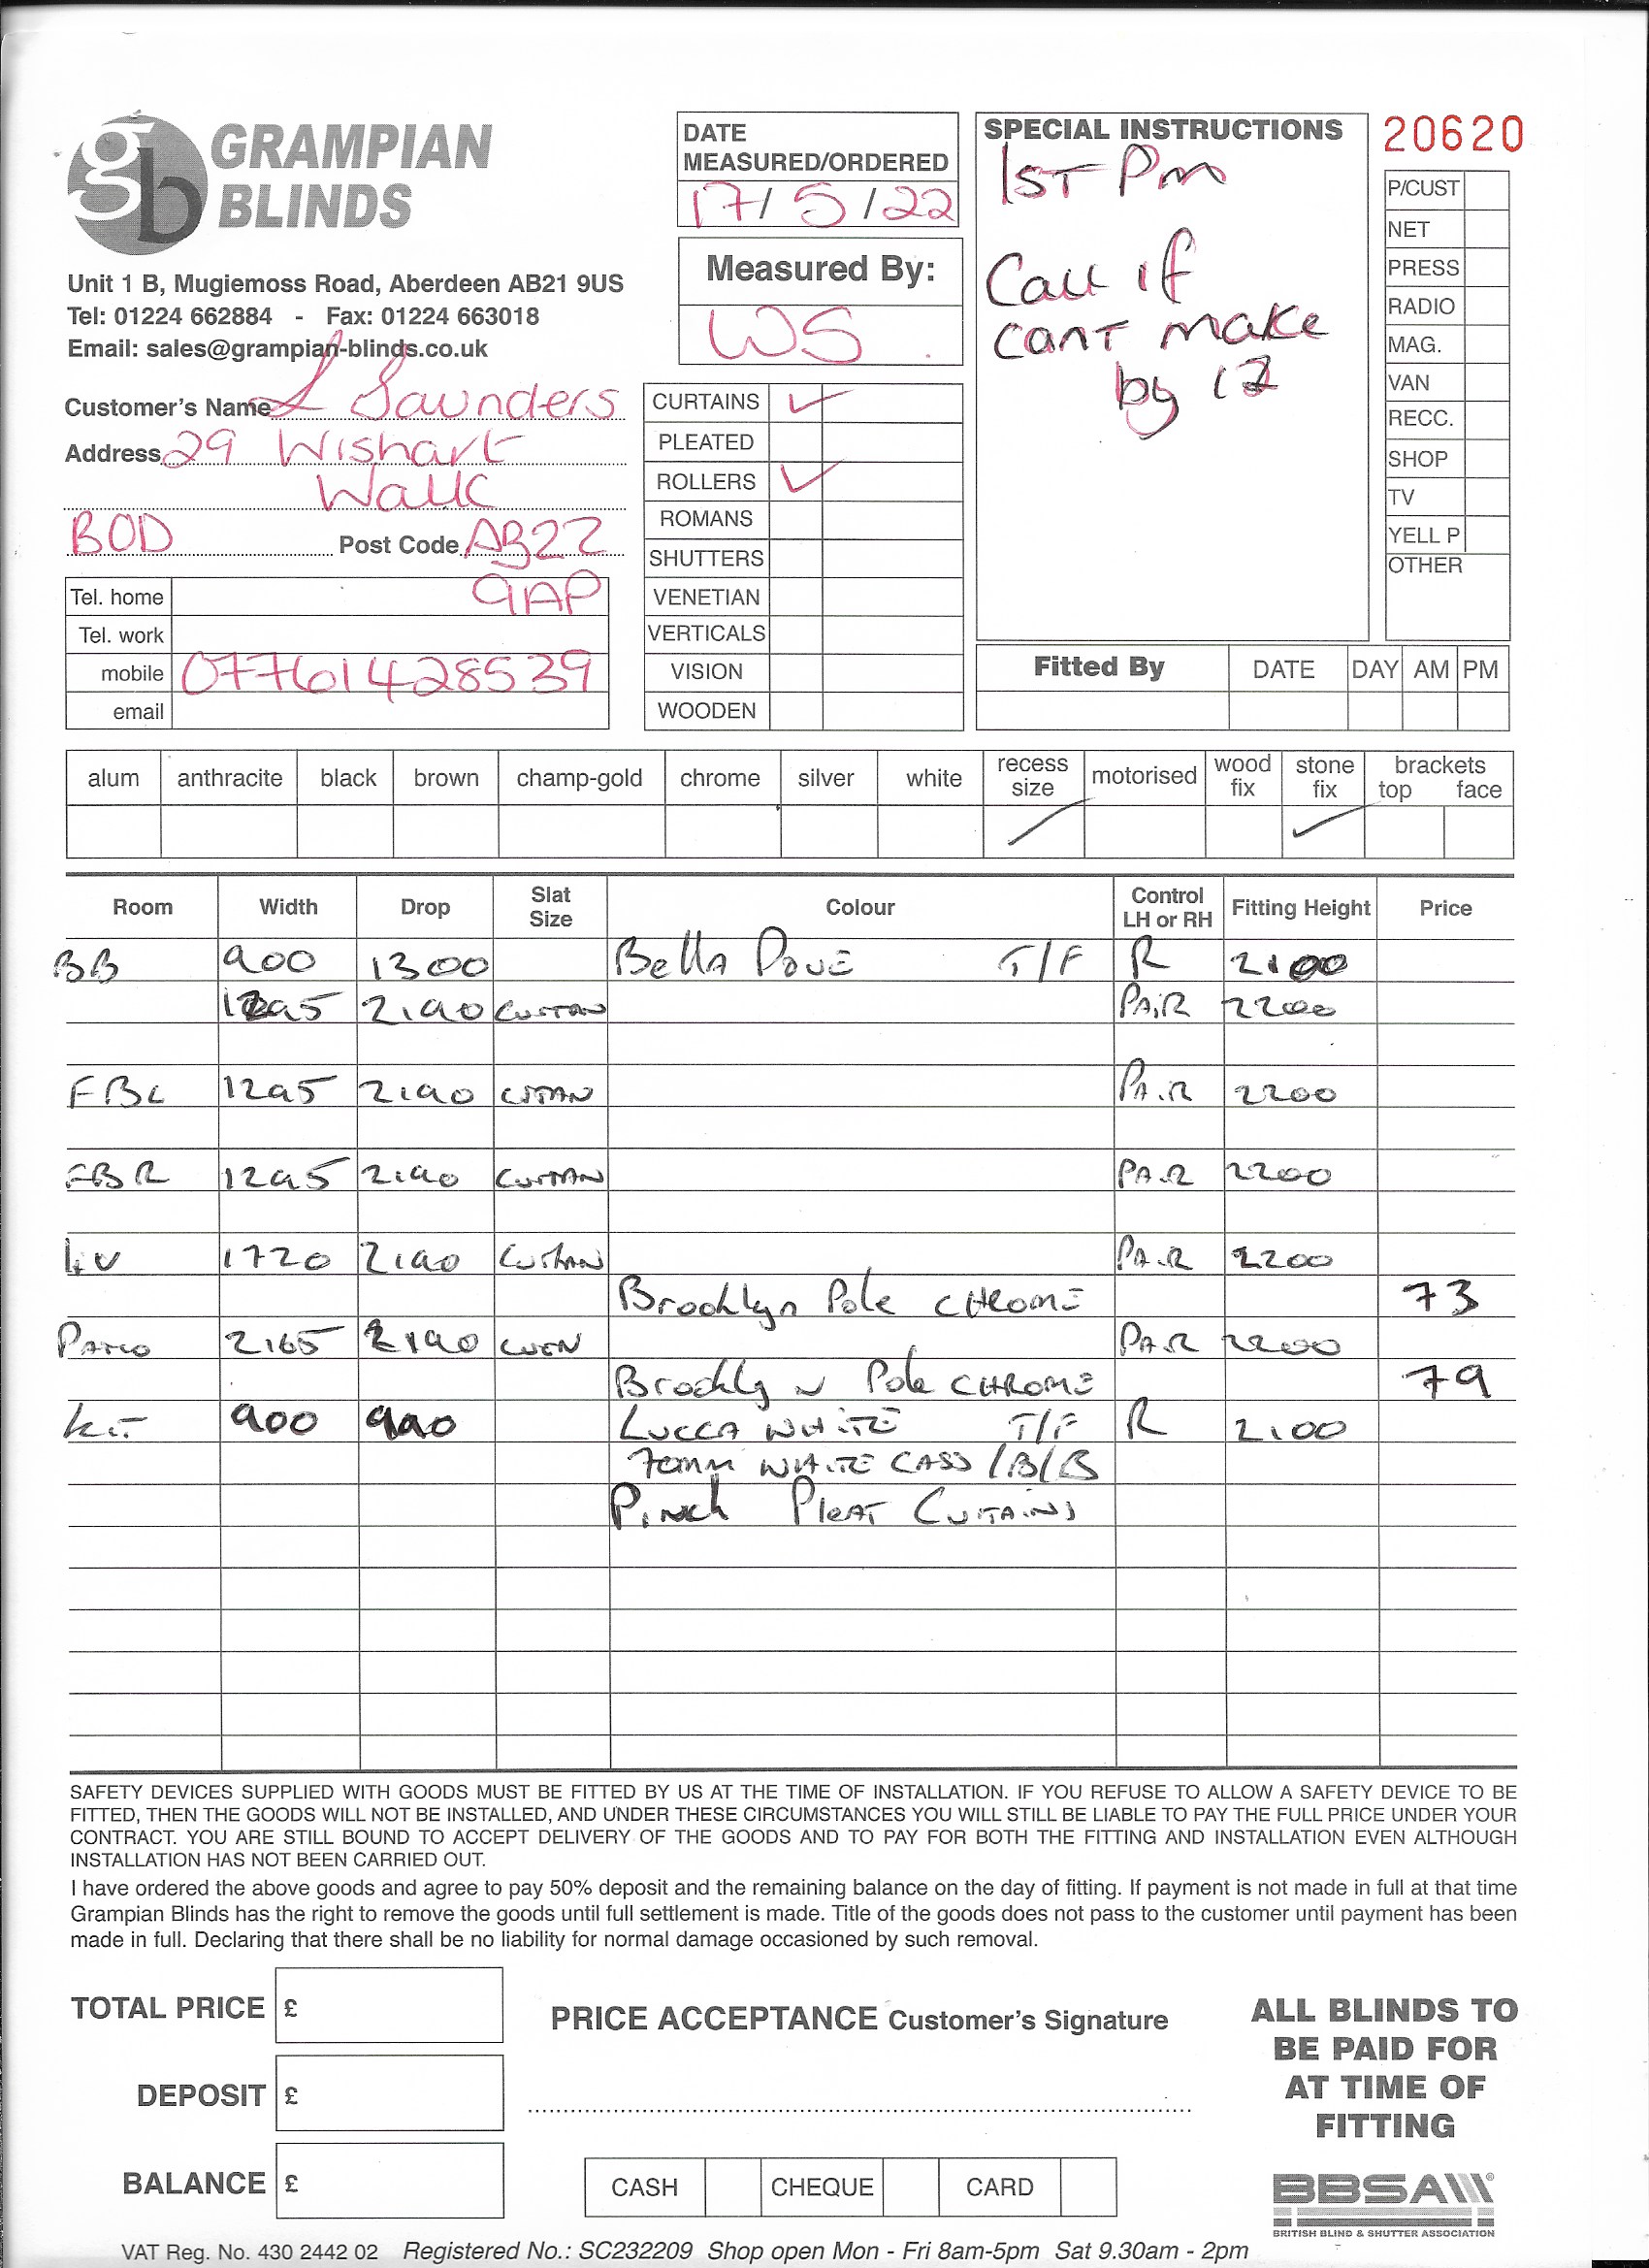 gb GRAMPIAN BLINDS
Unit 1 B, Mugiemoss Road, Aberdeen AB21 9US
Tel: 01224 662884 - Fax: 01224 663018
Email: sales@grampian-blinds.co.uk
Customer's Name L Saunders
Address 29 Wishart
Walk
BOD Post Code AB22
9AP
Tel. home
Tel. work
mobile 07761428539
email
DATE
MEASURED/ORDERED
17/5/22
Measured By:
WS
CURTAINS ✓
PLEATED
ROLLERS ✓
ROMANS
SHUTTERS
VENETIAN
VERTICALS
VISION
WOODEN
SPECIAL INSTRUCTIONS
1ST PM
Call if
cant make
by 12
20620
P/CUST
NET
PRESS
RADIO
MAG.
VAN
RECC.
SHOP
TV
YELL P
OTHER
Fitted By DATE DAY AM PM
alum anthracite black brown champ-gold chrome silver white recess size motorised wood fix stone fix brackets top face
Room Width Drop Slat Size Colour Control LH or RH Fitting Height Price
BB 900 1300 Bella Dove T/F R 2100
1295 2190 CURTAN PAIR 2200
FBL 1295 2190 PAIR 2200
FBR 1295 2190 CURTAN PAIR 2200
LV 1720 2190 Curtan PAIR 2200
Brooklyn Pole CHROME 73
Patio 2165 2190 PAIR 2200
Brooklyn Pole CHROME 79
Kit 900 990 LUCCA WHITE T/F R 2100
70mm WHITE CASS /B/B
Pinch Pleat Curtains
SAFETY DEVICES SUPPLIED WITH GOODS MUST BE FITTED BY US AT THE TIME OF INSTALLATION. IF YOU REFUSE TO ALLOW A SAFETY DEVICE TO BE
FITTED, THEN THE GOODS WILL NOT BE INSTALLED, AND UNDER THESE CIRCUMSTANCES YOU WILL STILL BE LIABLE TO PAY THE FULL PRICE UNDER YOUR
CONTRACT. YOU ARE STILL BOUND TO ACCEPT DELIVERY OF THE GOODS AND TO PAY FOR BOTH THE FITTING AND INSTALLATION EVEN ALTHOUGH
INSTALLATION HAS NOT BEEN CARRIED OUT.
I have ordered the above goods and agree to pay 50% deposit and the remaining balance on the day of fitting. If payment is not made in full at that time
Grampian Blinds has the right to remove the goods until full settlement is made. Title of the goods does not pass to the customer until payment has been
made in full. Declaring that there shall be no liability for normal damage occasioned by such removal.
TOTAL PRICE £
DEPOSIT £
BALANCE £
PRICE ACCEPTANCE Customer's Signature
CASH CHEQUE CARD
ALL BLINDS TO
BE PAID FOR
AT TIME OF
FITTING
BBSA ®
BRITISH BLIND & SHUTTER ASSOCIATION
VAT Reg. No. 430 2442 02 Registered No.: SC232209 Shop open Mon - Fri 8am-5pm Sat 9.30am - 2pm